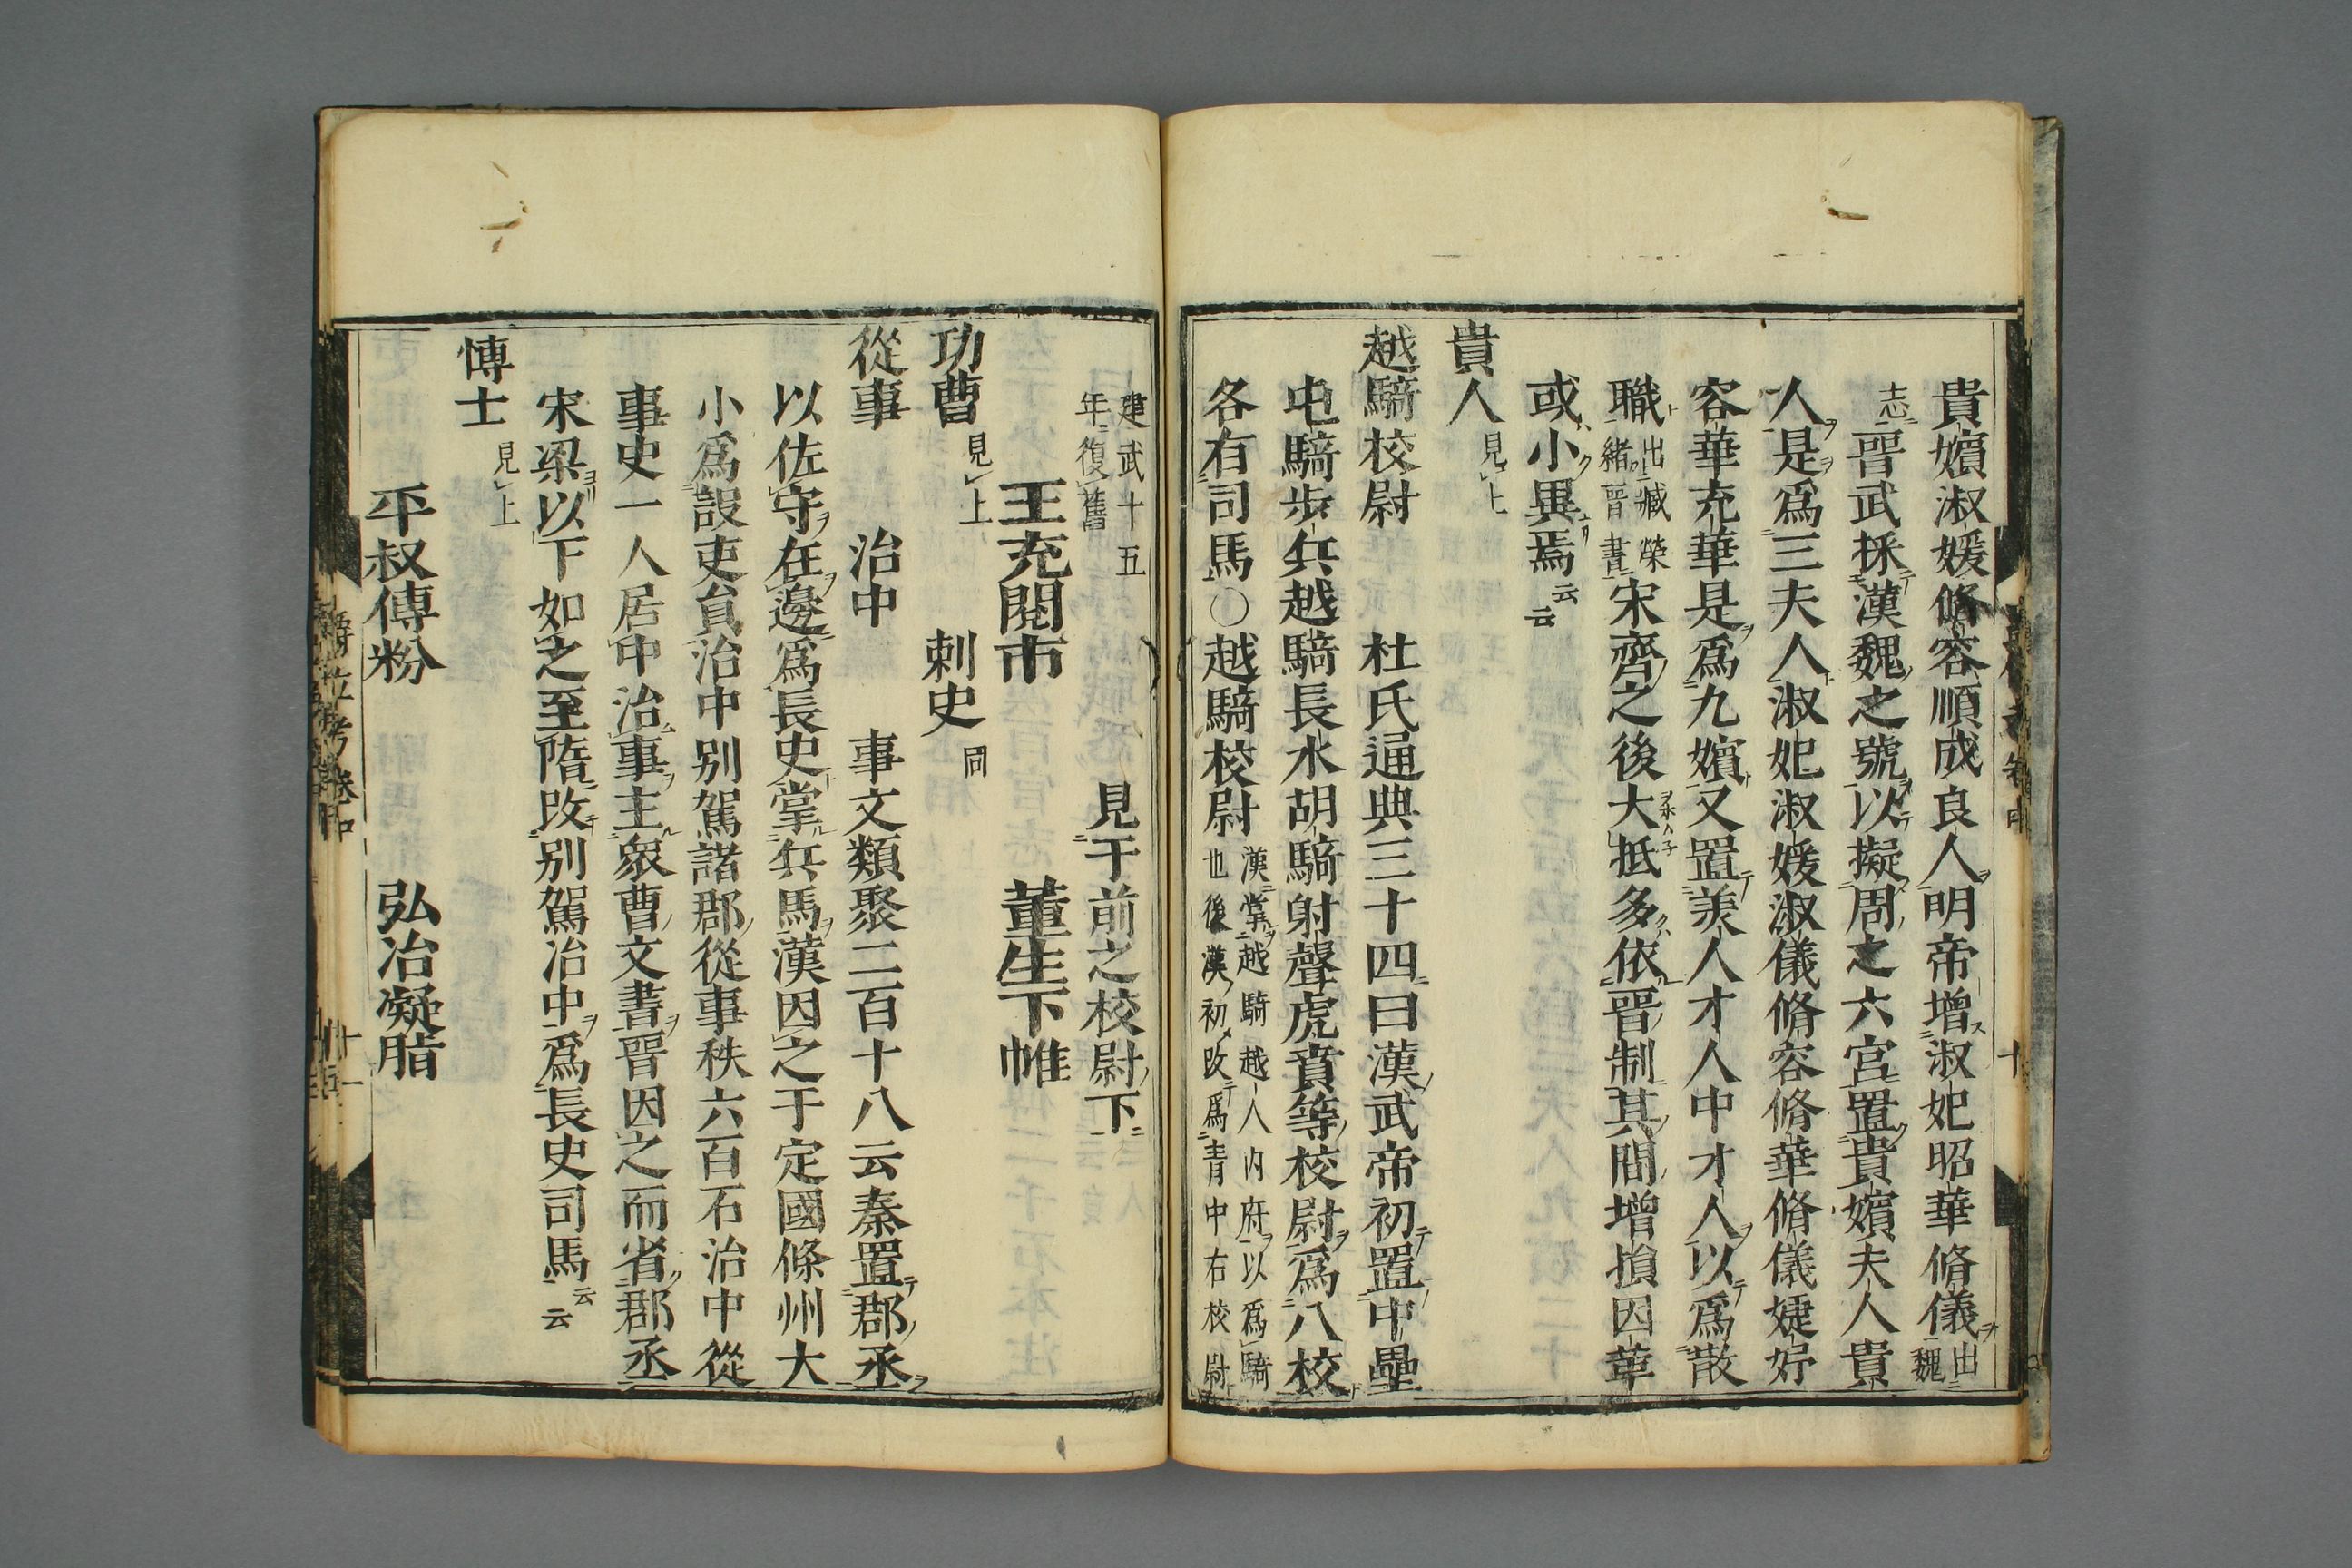 貴嬪淑媛脩容順成良人明帝增淑妃昭華脩儀出魏
志晉武採漢魏之號以擬周之六宮置貴嬪夫人貴
人是爲三夫人淑妃淑媛淑儀脩容脩華脩儀婕妤
容華充華是爲九嬪又置美人才人中才人以爲散
職出臧榮緒晉書宋齊之後大抵多依晉制其間增損因革
或小異焉云云
貴人見上
越騎校尉 杜氏通典三十四曰漢武帝初置中壘
屯騎步兵越騎長水胡騎射聲虎賁等校尉爲八校
各有司馬○越騎校尉漢掌越騎越人內府以爲騎也後漢初改爲青巾右校尉
建武十五年復舊 見于前之校尉下
王充閱市 董生下帷
功曹見上 刺史同
從事 治中 事文類聚二百十八云秦置郡丞
以佐守在邊爲長史掌兵馬漢因之于定國條州大
小爲設吏員治中別駕諸郡從事秩六百石治中從
事史一人居中治事主衆曹文書晉因之而省郡丞
宋梁以下如之至隋改別駕治中爲長史司馬云云
博士見上
平叔傅粉 弘治凝脂
爵位考卷中 十一